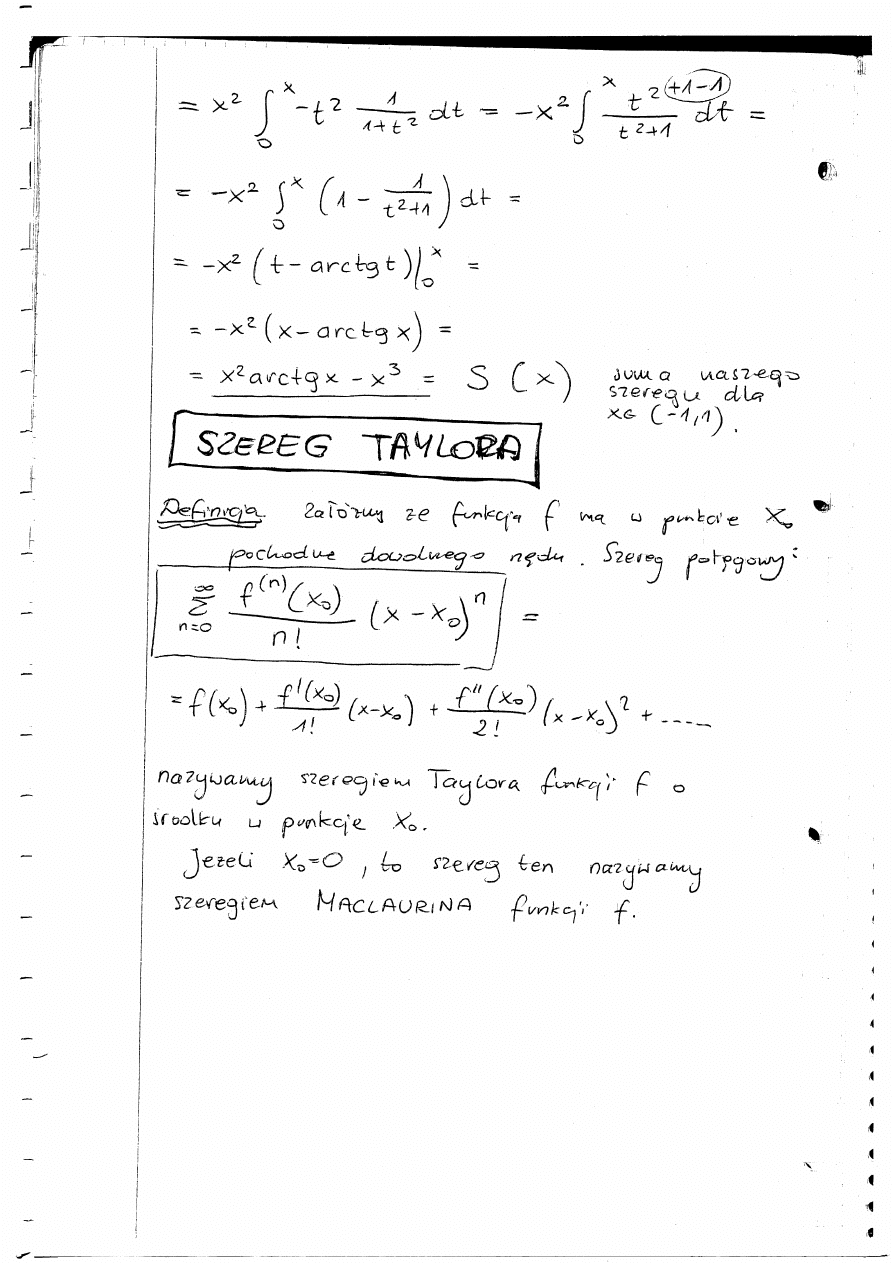 = x² ∫₀ˣ -t² 1/(1+t²) dt = -x² ∫₀ˣ (t²+1-1)/(t²+1) dt =
= -x² ∫₀ˣ (1 - 1/(t²+1)) dt =
= -x² (t - arctg t)|₀ˣ =
= -x² (x - arctg x) =
= x² arctg x - x³ = S(x) suma naszego
szeregu dla
x∈(-1,1).
SZEREG TAYLORA
Definicja Załóżmy ze funkcja f ma w punkcie x₀
pochodne dowolnego rzędu. Szereg potęgowy:
∑_{n=0}^{∞} f⁽ⁿ⁾(x₀)/n! (x-x₀)ⁿ =
= f(x₀) + f'(x₀)/1! (x-x₀) + f''(x₀)/2! (x-x₀)² + .....
nazywamy szeregiem Taylora funkcji f o
środku w punkcje x₀.
Jeżeli x₀=0, to szereg ten nazywamy
szeregiem MACLAURINA funkcji f.